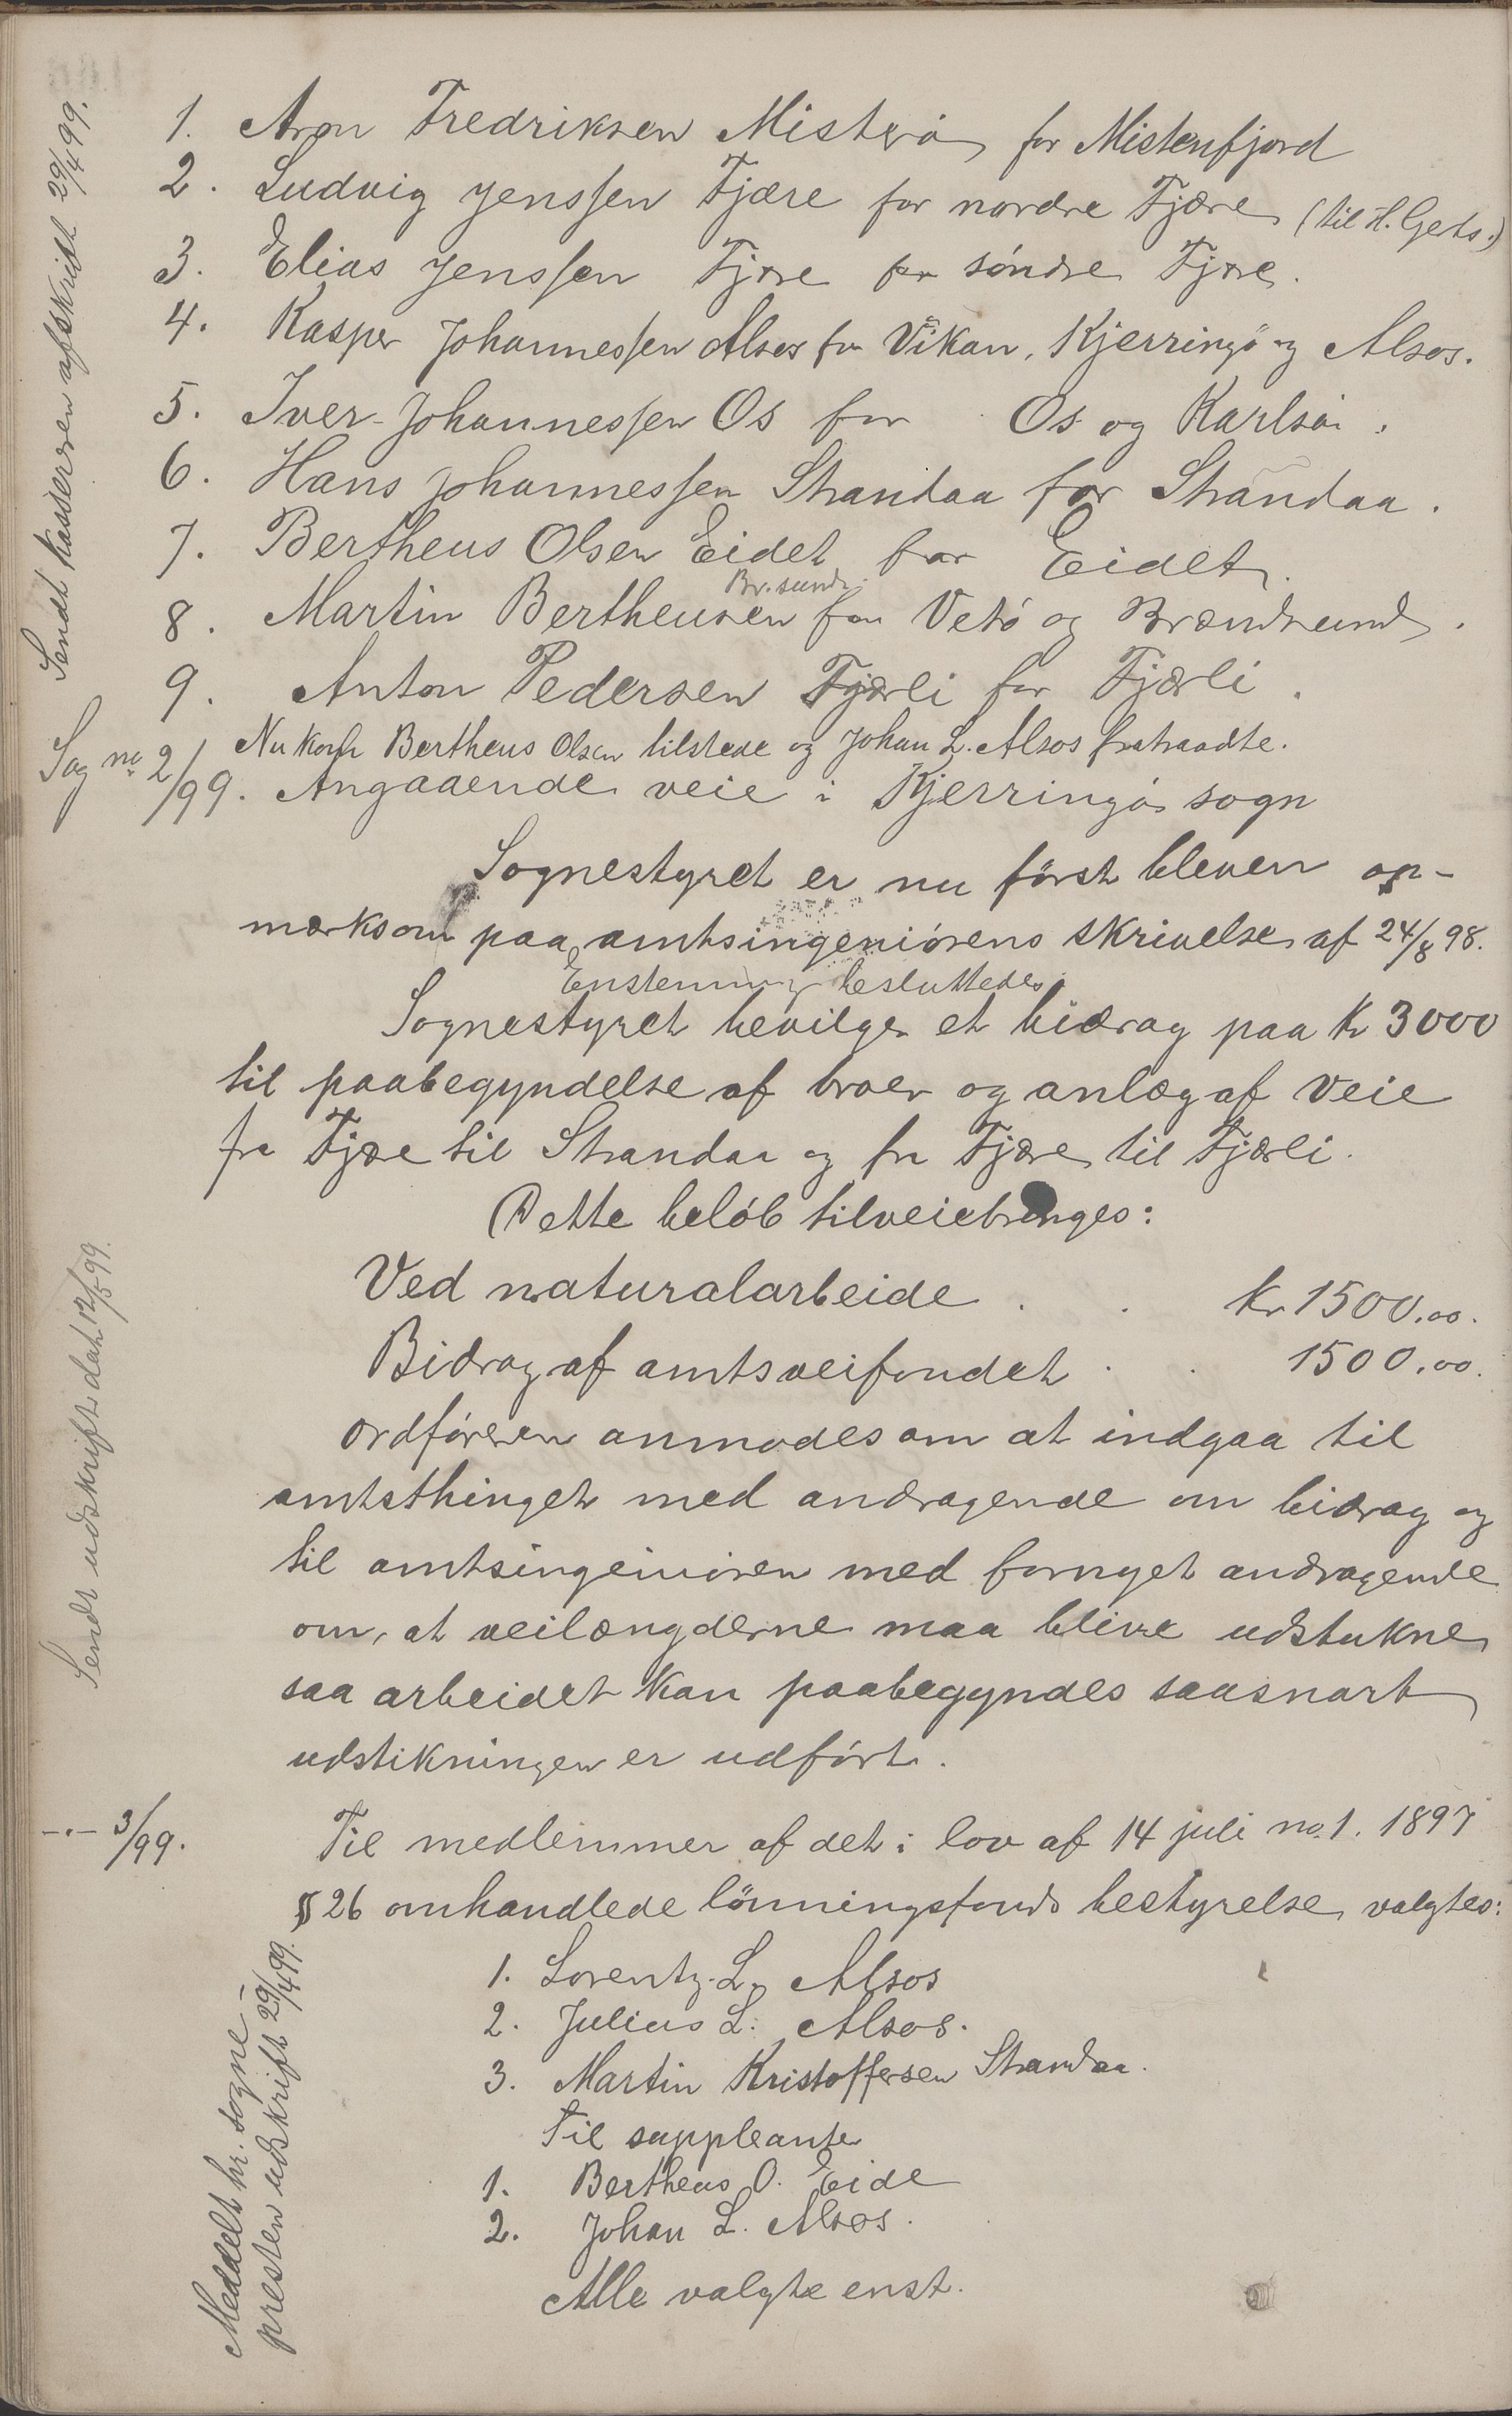 1. Aron Fredriksen Misterö for Mistenfjord
2. Ludvig Jenssen Fjære for nordre Fjære (til H. Gerts.)
3. Elias Jenssen Fjære for söndre Fjære.
4. Kasper Johannessen Alsos for Vikan, Kjerringö og Alsos.
5. Iver Johannessen Os for Os og Karlsöi.
6. Hans Johannessen Strandaa for Strandaa.
7. Bertheus Olsen Eidet for Eidet.
Br.sund.
8. Martin Bertheusen for Vetö og Brændsund.
9. Anton Pedersen Fjærli for Fjærli.
Sendt kassereren afskrift 29/4 99.
Nu kom Bertheus Olsen tilstede og Johan L. Alsos fratraadte.
Sag no 2/99. Angaaende veie i Kjerringö sogn
Sognestyret er nu först bleven op-
mærksom paa amtsingeniörens skrivelse af 24/8 98.
Enstemmig besluttedes:
Sognestyret bevilger et bidrag paa Kr 3000
til paabegyndelse af broer og anlæg af veie
fra Fjære til Strandaa og fra Fjære til Fjærli.
Dette belöb tilveiebringes:
Ved naturalarbeide . . Kr 1500.00.
Bidrag af amtsveifondet . . 1500.00.
Ordföreren anmodes om at indgaa til
amtsthinget med andragende om bidrag og
til amtsingeniören med fornyet andragende
om, at veilængderne maa blive udstukne
saa arbeidet kan paabegyndes saasnart
udstikningen er udfört.
Sendt udskrift dat 12/5 99.
-"- 3/99. Til medlemmer af det i lov af 14 juli no. 1. 1897
§ 26 omhandlede lönningsfonds bestyrelse valgtes:
1. Lorentz L. Alsos
2. Julius L. Alsos.
3. Martin Kristoffersen Strandaa.
Til suppleanter
1. Bertheus O. Eide
2. Johan L. Alsos.
Alle valgte enst.
Meddelt hr. sogne-
presten udskrift 29/4 99.